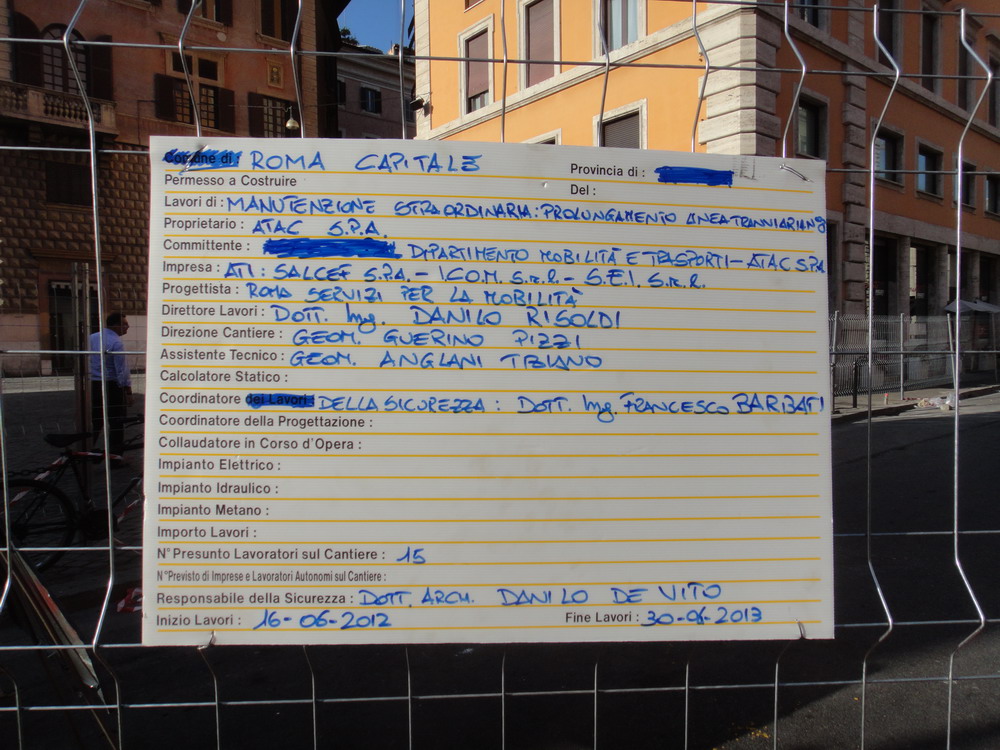 Comune di: ROMA CAPITALE Provincia di:
Permesso a Costruire Del:
Lavori di: MANUTENZIONE STRAORDINARIA: PROLUNGAMENTO LINEA TRANVIARIA N8
Proprietario: ATAC S.P.A.
Committente: DIPARTIMENTO MOBILITÀ E TRASPORTI - ATAC S.P.A.
Impresa: ATI: SALCEF S.P.A. - I.CO.M. S.R.L. - S.E.I. S.R.L.
Progettista: ROMA SERVIZI PER LA MOBILITÀ
Direttore Lavori: DOTT. Ing. DANILO RISOLDI
Direzione Cantiere: GEOM. GUERINO PIZZI
Assistente Tecnico: GEOM. ANGLANI
Calcolatore Statico:
Coordinatore dei Lavori DELLA SICUREZZA: DOTT. Ing. FRANCESCO BARBATI
Coordinatore della Progettazione:
Collaudatore in Corso d'Opera:
Impianto Elettrico:
Impianto Idraulico:
Impianto Metano:
Importo Lavori:
N° Presunto Lavoratori sul Cantiere: 15
N° Previsto di Imprese e Lavoratori Autonomi sul Cantiere:
Responsabile della Sicurezza: DOTT. ARCH. DANILO DE VITO
Inizio Lavori: 16-06-2012 Fine Lavori: 30-06-2013